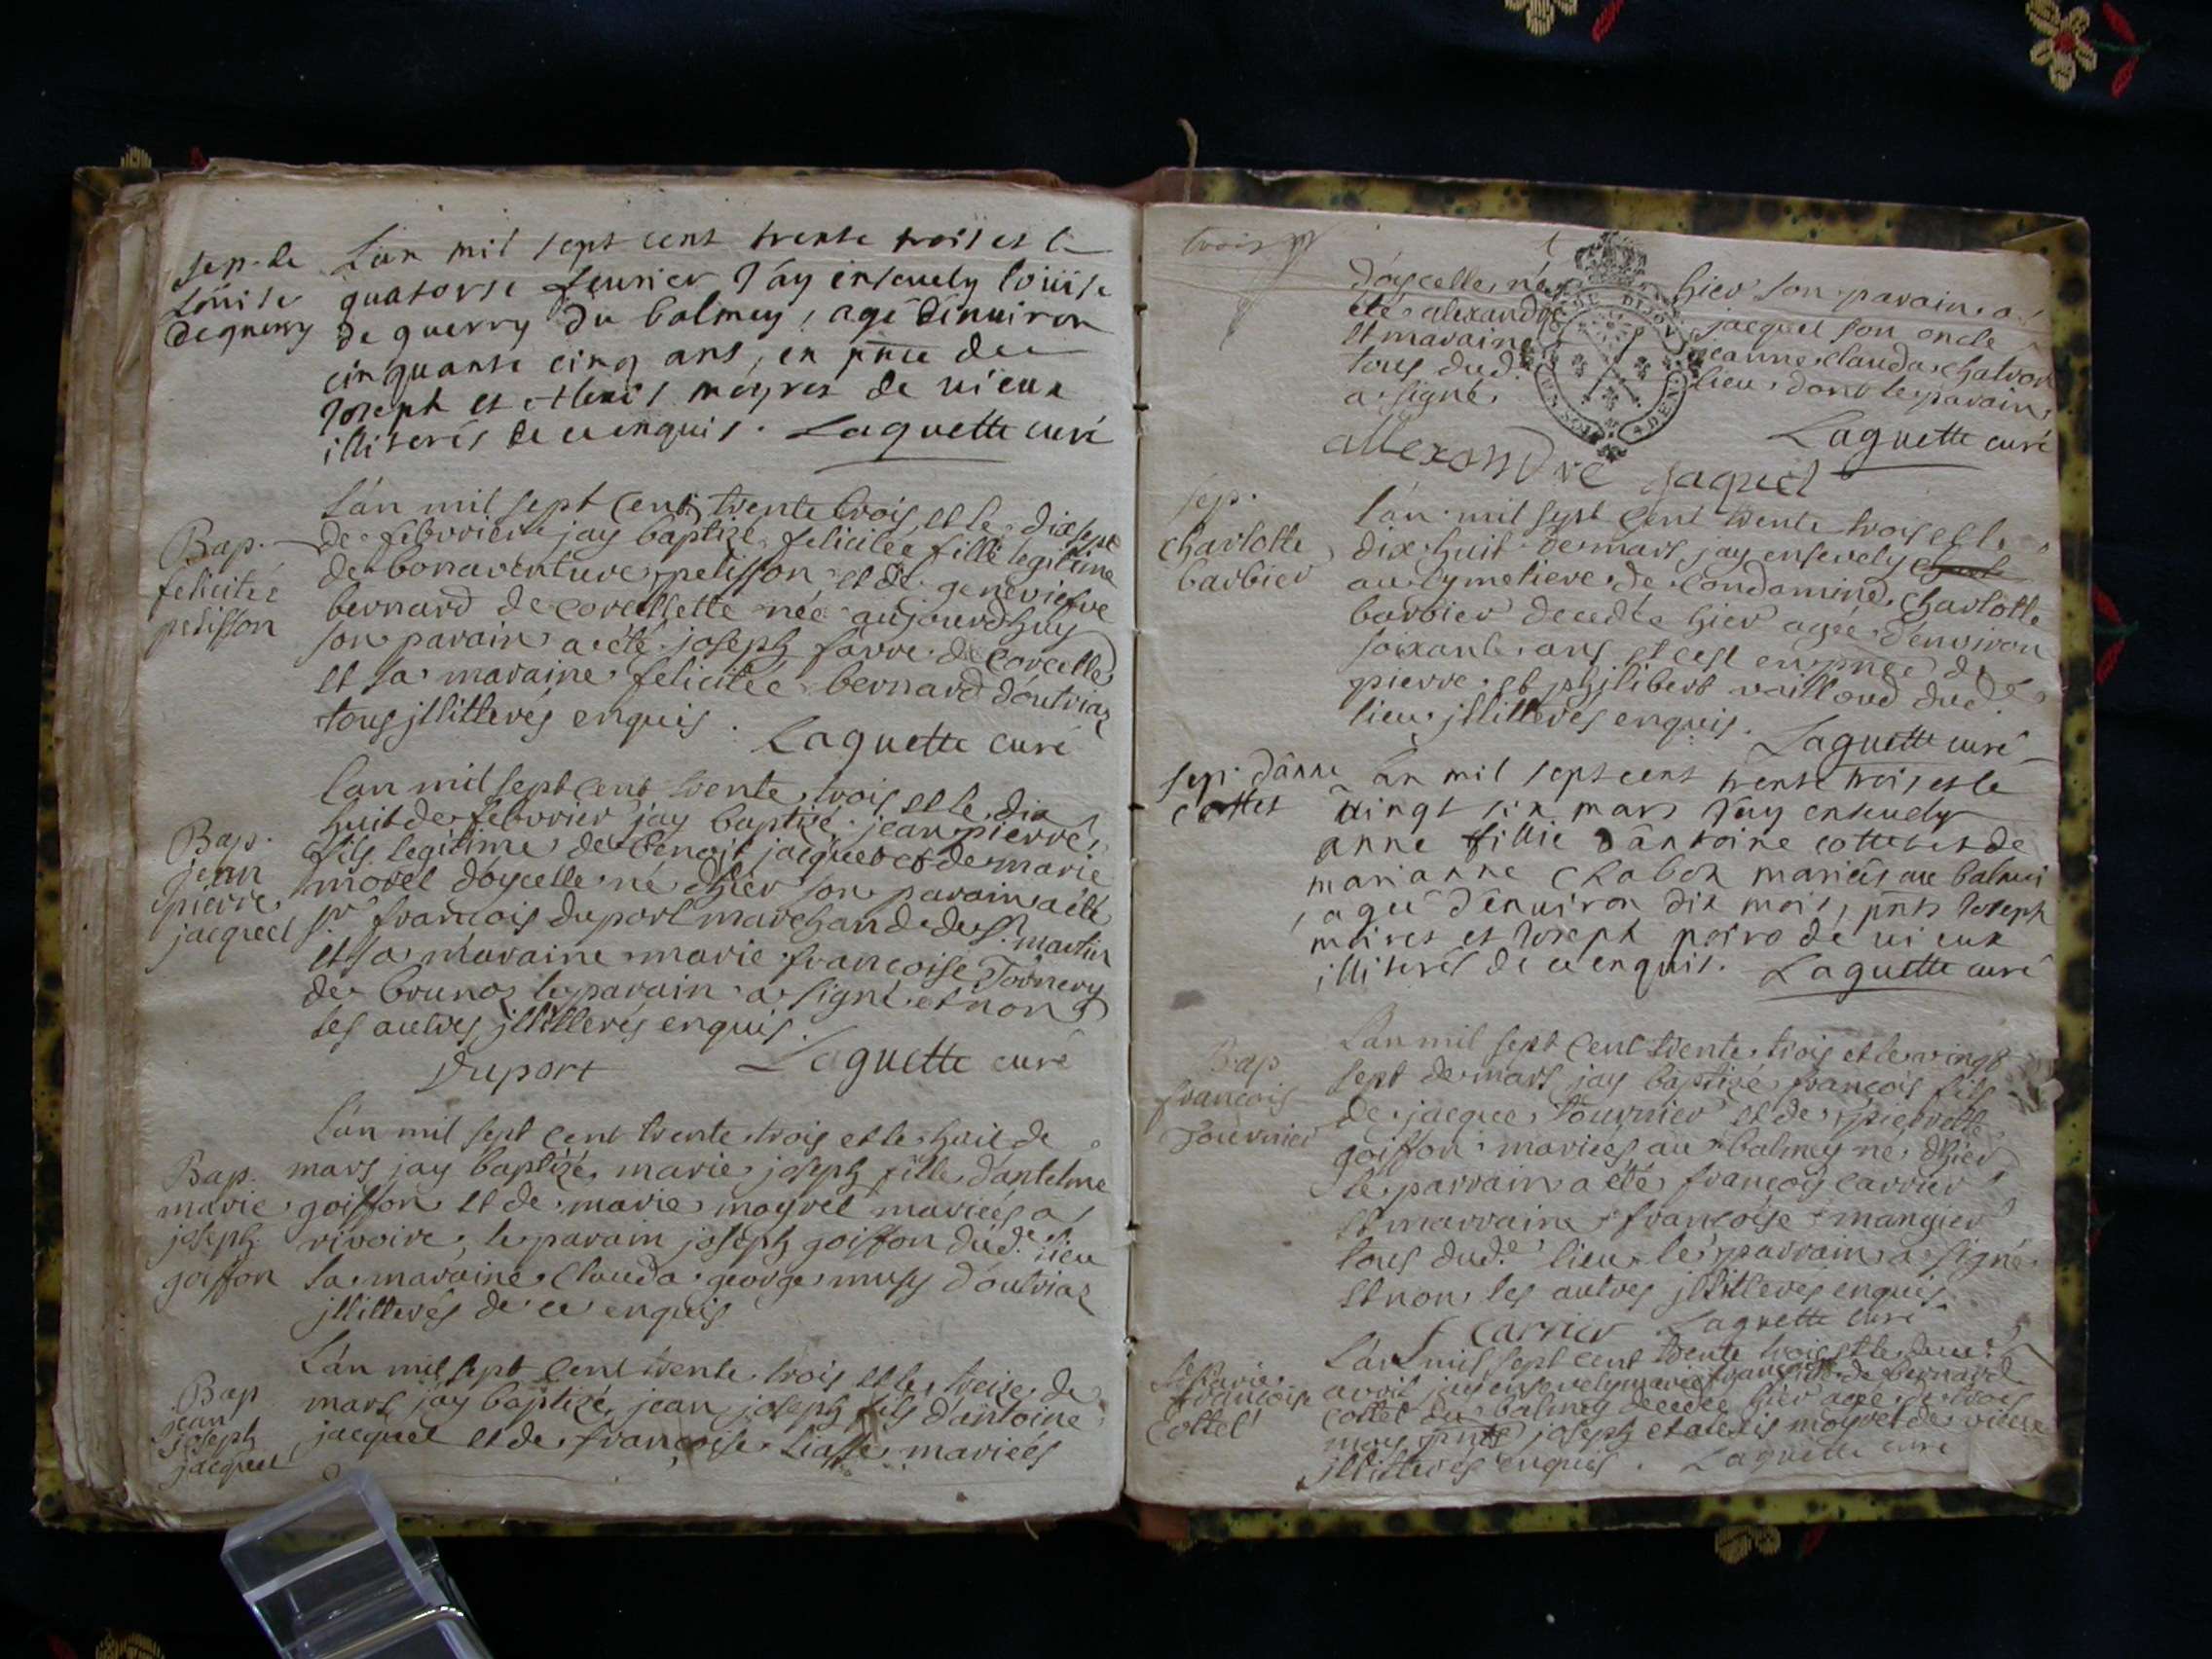 sep. de
Loüise
deguerry
Lan mil sept cent trente trois et le
quatorse feurier J'ay enseuely loüise
de guerry du balmey, agé d'enuiron
cinquante cinq ans, en pñce de
Joseph et Alexis moyres de uieux
illiterés de ce enquis. Laguette curé
Bap.
felicitée
petisson
Lán mil sept Cent trente trois, et le dix sept
de febvrier jay baptizé felicitée fille legitime
de bonaventure petisson et de geneviefve
bernard de corcellette née aujourdhuy
son parain a eté joseph favre de Corcelle
et la maraine felicitée bernard dóutriaz
tous jllitterés enquis.
Laguette curé
Bap.
jean
pierre
jacquet
Lan mil sept Cent trente trois et le dix
huit de febvrier jay baptizé jean pierre
fils legitime de benoit jacquet et de marie
morel dóycelle né dhier son parain a eté
sr. francois duport marchand de St. martin
et sa maraine marie francoise Tornery
de brunoz le parain a signé et non
les autres jllitterés enquis.
Duport Laguette curé
Bap.
marie
joseph
goiffon
Lán mil sept Cent trente trois et le huit de
mars jay baptizé marie joseph fille dantelme
goiffon et de marie moyret mariés a
rivoire, le parain joseph goiffon dud. lieu
la maraine Clauda george musy dóutriaz
jllitterés de ce enquis
Bap
jean
joseph
jacquet
Lán mil sept Cent trente trois et le treize de
mars jay baptizé jean joseph fils dantoine
jacquet et de francoise liasse mariés
trois
dóycelle né hier son parain a
eté alexandre jacquet son oncle
et maraine jeanne clauda chatron
tous dud. lieu dont le parain
a signé.
Laguette curé
allexandre jaquet
sep.
charlotte
barbier
Lán mil sept Cent trente trois et le
dix huit de mars jay ensevely
au cymetiere de Condamine Charlotte
barbier decedée hier agée d'environ
soixante ans et cest en pnce de
pierre et philibert vailloud dud.
lieu jllitterés enquis.
Laguette curé
sep. dánne
cottet
Lan mil sept cent trente trois et le
uingt six mars J'ay enseuely
anne fillie d'antoine cottet et de
marianne Chabon mariés au balmei
, ageé d'enuiron dix mois, pñts Joseph
moires et Joseph poiro de uieux
illiterés de ce enquis. Laguette curé
Bap
francois
Tournier
Lan mil sept Cent trente trois et le vingt
sept de mars jay baptizé francois fils
de jacque tournier et de pierrette
goiffon mariés au balmey né dhier
le parrain a eté francois carrier
et marraine francoise mangier
tous dud. lieu le parrain a signé
et non les autres jllitterés enquis.
f Carrier Laguette curé
marie
francoise
Cottet
Lán mil sept cent trente trois et le deux
avril jay ensevely marie francoise de bernard
cottet du balmey decedée hier agée de trois
mois pnts joseph et alexis moyret de vieux
jllitterés enquis. Laguette curé